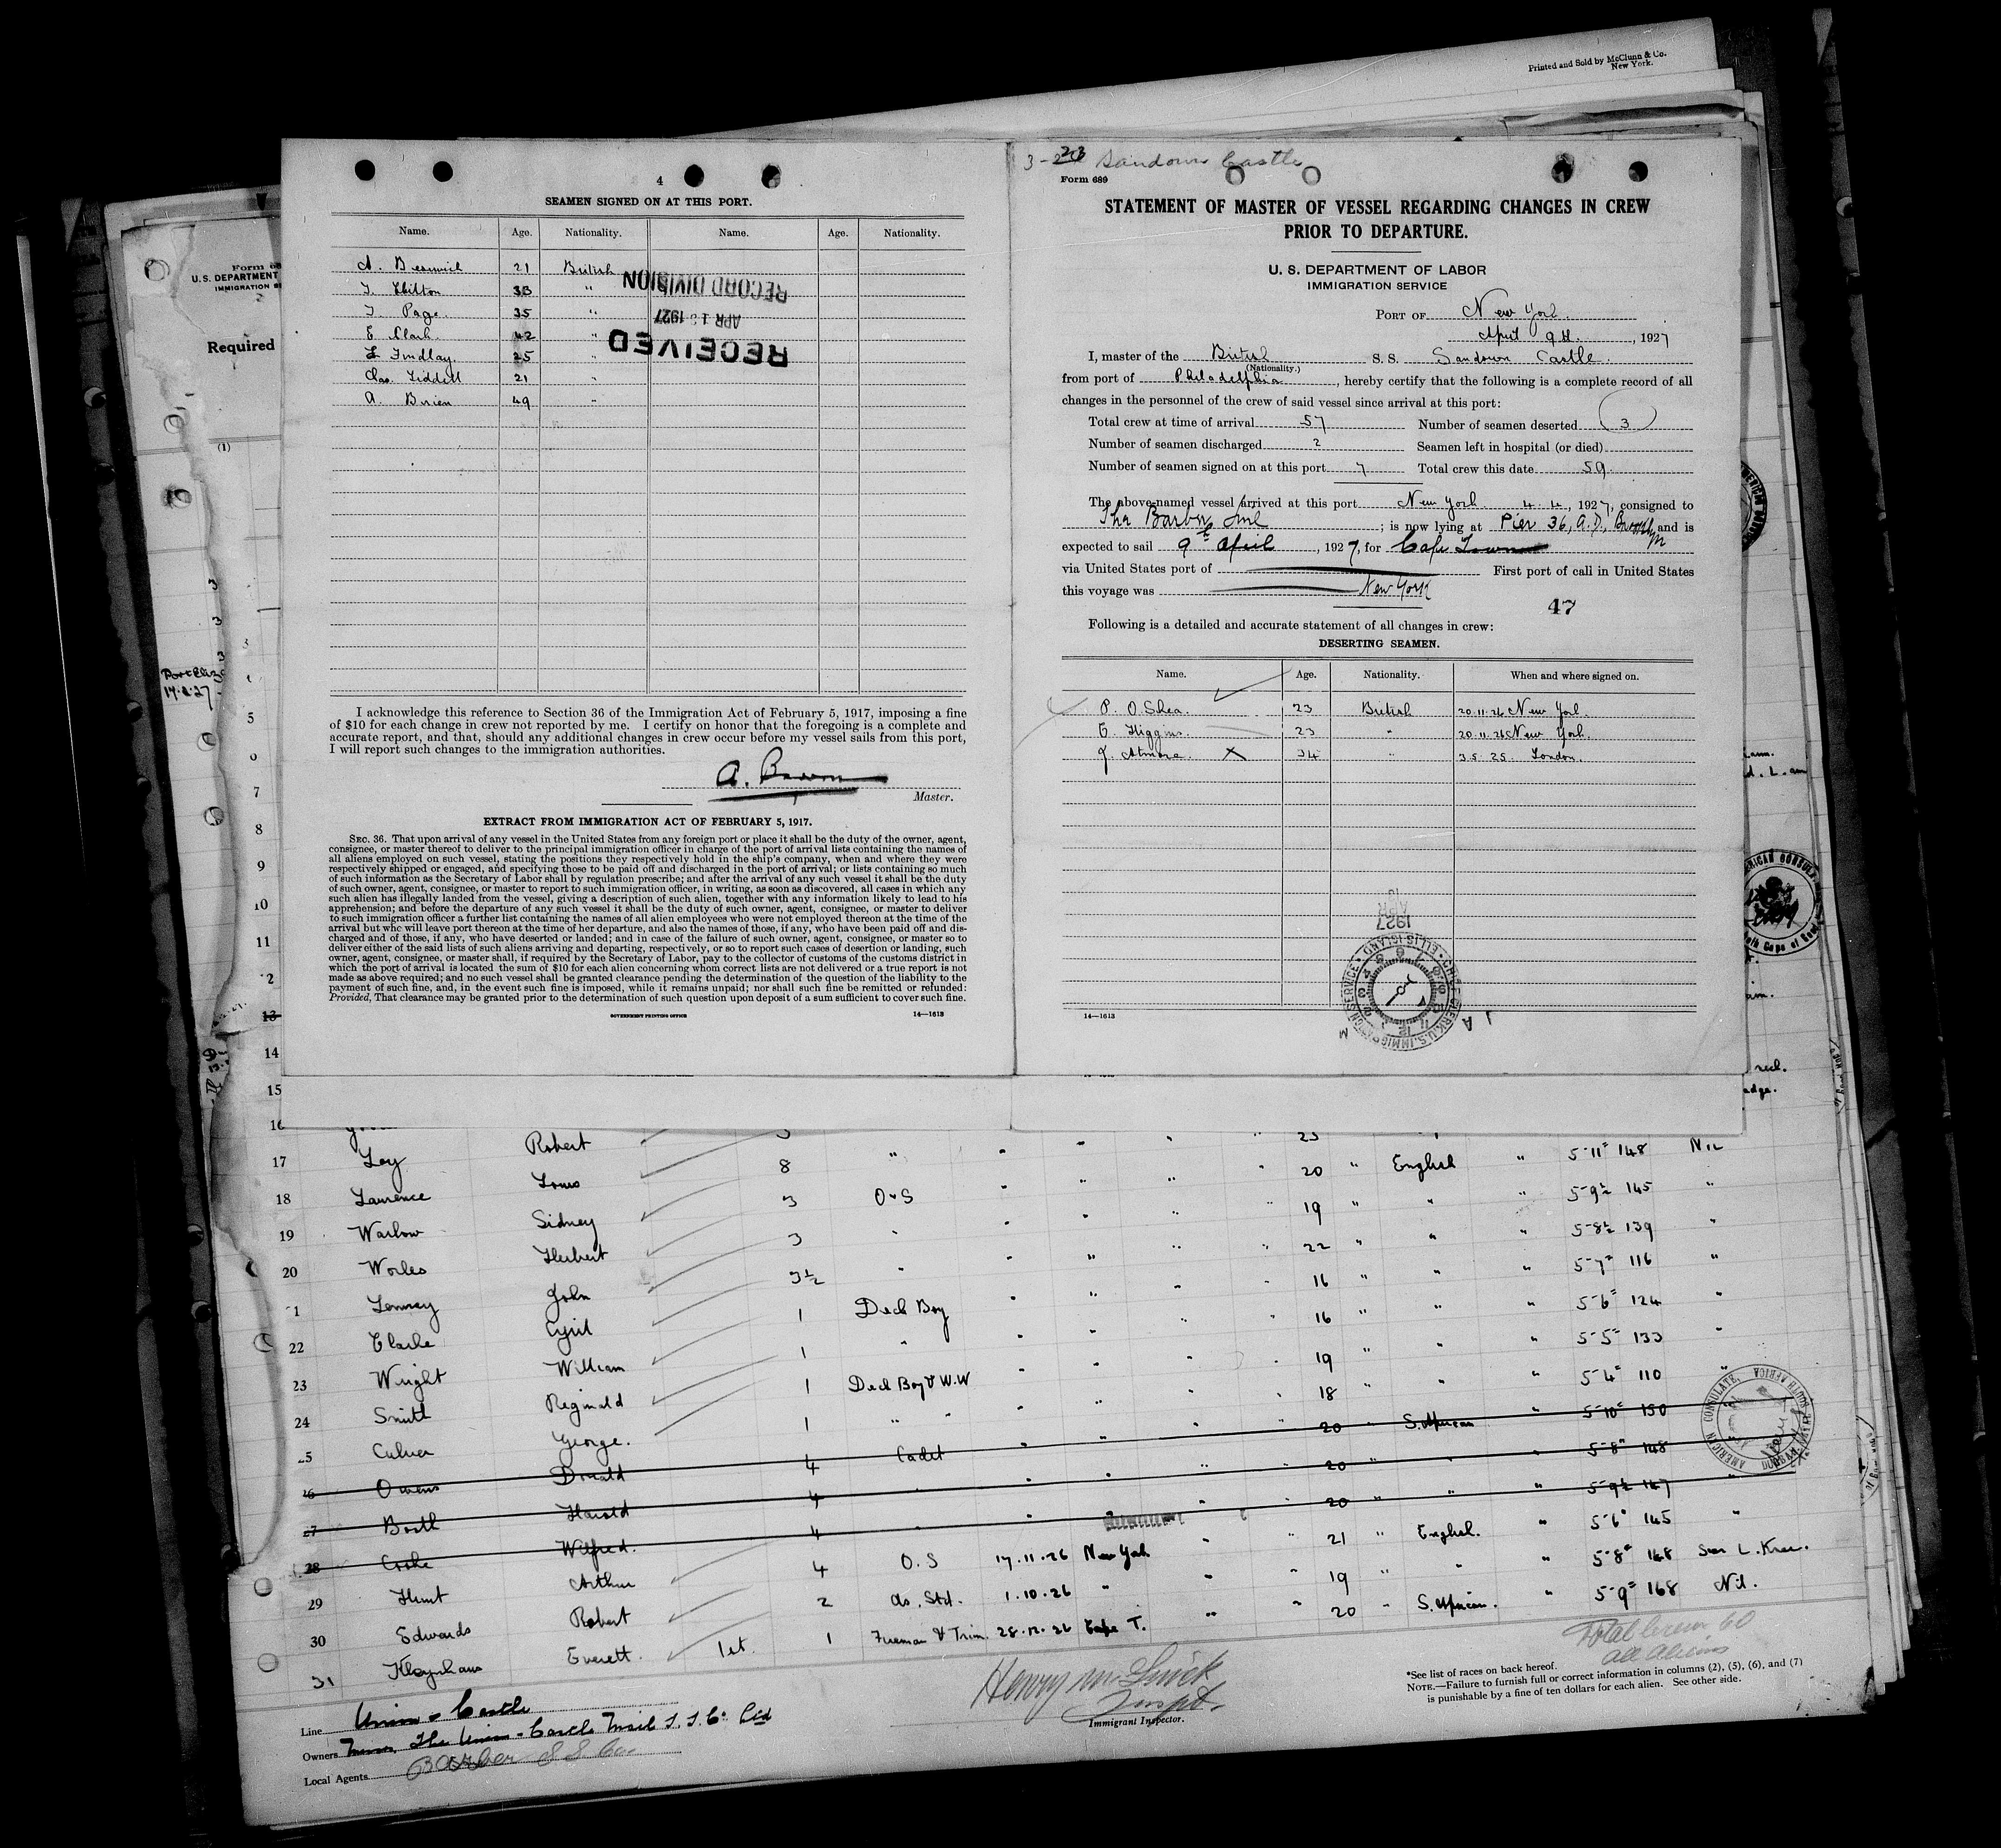 Printed and Sold by McClunn & Co.
New York.
Form 68
U. S. DEPARTMENT
IMMIGRATION SE
Required
(1)
4
SEAMEN SIGNED ON AT THIS PORT.
Name. Age. Nationality. Name. Age. Nationality.
A. Beswick 21 British
T. Hilton 33 "
T. Page. 35 "
E. Clark. 42 "
L. Findlay. 25 "
Chas. Liddell 21 "
A. Brien 49 "
RECEIVED
APR 13 1927
RECORD DIVISION
I acknowledge this reference to Section 36 of the Immigration Act of February 5, 1917, imposing a fine
of $10 for each change in crew not reported by me. I certify on honor that the foregoing is a complete and
accurate report, and that, should any additional changes in crew occur before my vessel sails from this port,
I will report such changes to the immigration authorities.
Master.
EXTRACT FROM IMMIGRATION ACT OF FEBRUARY 5, 1917.
SEC. 36. That upon arrival of any vessel in the United States from any foreign port or place it shall be the duty of the owner, agent,
consignee, or master thereof to deliver to the principal immigration officer in charge of the port of arrival lists containing the names of
all aliens employed on such vessel, stating the positions they respectively hold in the ship's company, when and where they were
respectively shipped or engaged, and specifying those to be paid off and discharged in the port of arrival; or lists containing so much
of such information as the Secretary of Labor shall by regulation prescribe; and after the arrival of any such vessel it shall be the duty
of such owner, agent, consignee, or master to report to such immigration officer, in writing, as soon as discovered, all cases in which any
such alien has illegally landed from the vessel, giving a description of such alien, together with any information likely to lead to his
apprehension; and before the departure of any such vessel it shall be the duty of such owner, agent, consignee, or master to deliver
to such immigration officer a further list containing the names of all alien employees who were not employed thereon at the time of the
arrival but who will leave port thereon at the time of her departure, and also the names of those, if any, who have been paid off and dis-
charged and of those, if any, who have deserted or landed; and in case of the failure of such owner, agent, consignee, or master so to
deliver either of the said lists of such aliens arriving and departing, respectively, or so to report such cases of desertion or landing, such
owner, agent, consignee, or master shall, if required by the Secretary of Labor, pay to the collector of customs of the customs district in
which the port of arrival is located the sum of $10 for each alien concerning whom correct lists are not delivered or a true report is not
made as above required; and no such vessel shall be granted clearance pending the determination of the question of the liability to the
payment of such fine, and, in the event such fine is imposed, while it remains unpaid; nor shall such fine be remitted or refunded:
Provided, That clearance may be granted prior to the determination of such question upon deposit of a sum sufficient to cover such fine.
GOVERNMENT PRINTING OFFICE 14—1613
Sandown Castle
Form 689
STATEMENT OF MASTER OF VESSEL REGARDING CHANGES IN CREW
PRIOR TO DEPARTURE.
U. S. DEPARTMENT OF LABOR
IMMIGRATION SERVICE
PORT OF New York.
April 9th, 1927
I, master of the British S. S. Sandown Castle.
(Nationality.)
from port of Philadelphia, hereby certify that the following is a complete record of all
changes in the personnel of the crew of said vessel since arrival at this port:
Total crew at time of arrival 57 Number of seamen deserted 3
Number of seamen discharged 2 Seamen left in hospital (or died)
Number of seamen signed on at this port 7 Total crew this date 59.
The above-named vessel arrived at this port New York 4-4, 1927, consigned to
The Barber Line; is now lying at Pier 36, A.D., Brooklyn and is
expected to sail 9th April, 1927, for Cape Town
via United States port of First port of call in United States
this voyage was New York
47
Following is a detailed and accurate statement of all changes in crew:
DESERTING SEAMEN.
Name. Age. Nationality. When and where signed on.
P. O.Shea. 23 British 20.11.26 New York.
E. Higgins. 23 " 20.11.26 New York.
J. Atmore. X 34 " 3.5.25. London.
APR
1927
CHIEF CLERK, U.S. IMMIGRATION SERVICE ELLIS ISLAND
14—1613
Robert
17 Loy Louis 8 " 20 " English " 5-11 148 Nil
18 Laurence Sidney 3 O.S 19 " " " 5-9½ 145 "
19 Warlow Herbert 3 " 22 " " " 5-8½ 139 "
20 Worles John 3½ " 16 " " " 5-7 116 "
1 Cyril 1 Deck Boy 16 " " " 5-6 124 "
22 Clarke William 1 " 19 " " " 5-5 133 "
23 Wright Reginald 1 Deck Boy & W.W 18 " " " 5-4 110 "
24 Smith George. 1 " " 20 " S. African " 5-10 150
25 Culver Donald 4 Cadet 20 " " " 5-8 148
26 Owens Harold 4 " 20 " " " 5-9½ 147 "
27 Booth Wilfred. 4 " 21 " English. " 5-6 145 "
28 Cooke Arthur 4 O.S 17.11.26 New York " 19 " " " 5-8 148 Scar L. Knee.
29 Hunt Robert 2 As. Std. 1.10.26 " " 20 " S. African. " 5-9 168 Nil.
30 Edwards Everett. 1st 1 Fireman & Trim. 28.12.26 Cape T.
31 Kleynhans
Total crew 60
all aliens
*See list of races on back hereof.
NOTE.—Failure to furnish full or correct information in columns (2), (5), (6), and (7)
is punishable by a fine of ten dollars for each alien. See other side.
Immigrant Inspector.
Line Union-Castle
Owners Messrs. The Union-Castle Mail S.S. Co. Ltd
Local Agents Barber S.S. Co.
AMERICAN CONSULATE, DURBAN SOUTH AFRICA